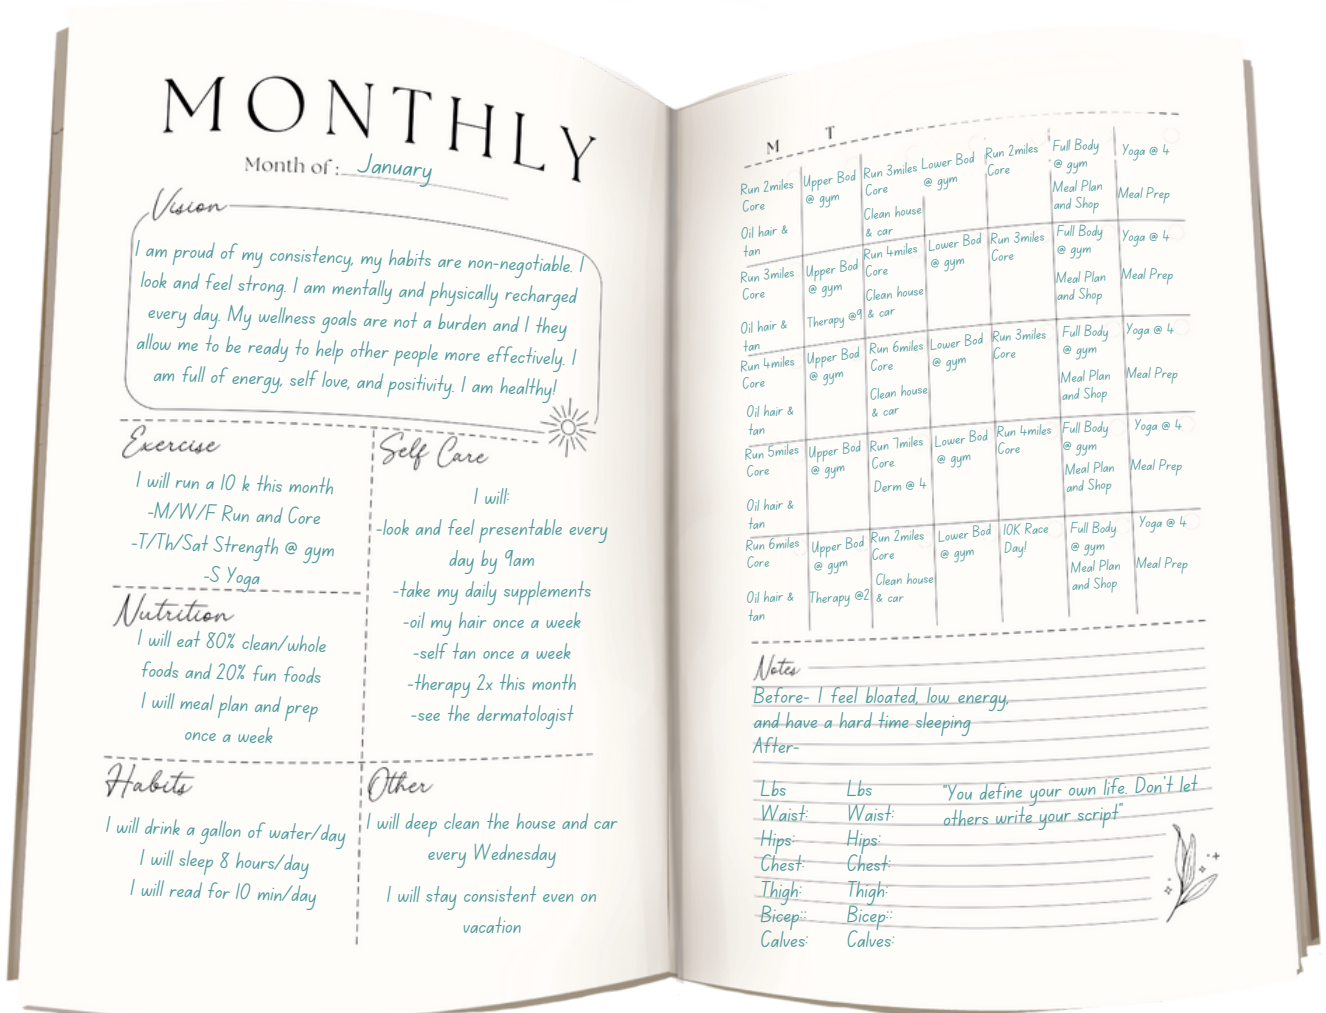 MONTHLY
Month of: January
Vision
I am proud of my consistency, my habits are non-negotiable. I
look and feel strong. I am mentally and physically recharged
every day. My wellness goals are not a burden and I they
allow me to be ready to help other people more effectively. I
am full of energy, self love, and positivity. I am healthy!
Exercise
I will run a 10 k this month
-M/W/F Run and Core
-T/Th/Sat Strength @ gym
-S Yoga
Nutrition
I will eat 80% clean/whole
foods and 20% fun foods
I will meal plan and prep
once a week
Self Care
I will:
-look and feel presentable every
day by 9am
-take my daily supplements
-oil my hair once a week
-self tan once a week
-therapy 2x this month
-see the dermatologist
Habits
I will drink a gallon of water/day
I will sleep 8 hours/day
I will read for 10 min/day
Other
I will deep clean the house and car
every Wednesday
I will stay consistent even on
vacation
M T
Run 2miles
Core
Oil hair &
tan
Upper Bod
@ gym
Run 3miles
Core
Clean house
& car
Lower Bod
@ gym
Run 2miles
Core
Full Body
@ gym
Meal Plan
and Shop
Yoga @ 4
Meal Prep
Run 3miles
Core
Oil hair &
tan
Upper Bod
@ gym
Therapy @9
Run 4miles
Core
Clean house
& car
Lower Bod
@ gym
Run 3miles
Core
Full Body
@ gym
Meal Plan
and Shop
Yoga @ 4
Meal Prep
Run 4miles
Core
Oil hair &
tan
Upper Bod
@ gym
Run 6miles
Core
Clean house
& car
Lower Bod
@ gym
Run 3miles
Core
Full Body
@ gym
Meal Plan
and Shop
Yoga @ 4
Meal Prep
Run 5miles
Core
Oil hair &
tan
Upper Bod
@ gym
Run 7miles
Core
Derm @ 4
Lower Bod
@ gym
Run 4miles
Core
Full Body
@ gym
Meal Plan
and Shop
Yoga @ 4
Meal Prep
Run 6miles
Core
Oil hair &
tan
Upper Bod
@ gym
Therapy @2
Run 2miles
Core
Clean house
& car
Lower Bod
@ gym
10K Race
Day!
Full Body
@ gym
Meal Plan
and Shop
Yoga @ 4
Meal Prep
Notes
Before- I feel bloated, low energy,
and have a hard time sleeping
After-
Lbs Lbs
Waist: Waist:
Hips: Hips:
Chest: Chest:
Thigh: Thigh:
Bicep:: Bicep::
Calves: Calves:
"You define your own life. Don't let
others write your script"